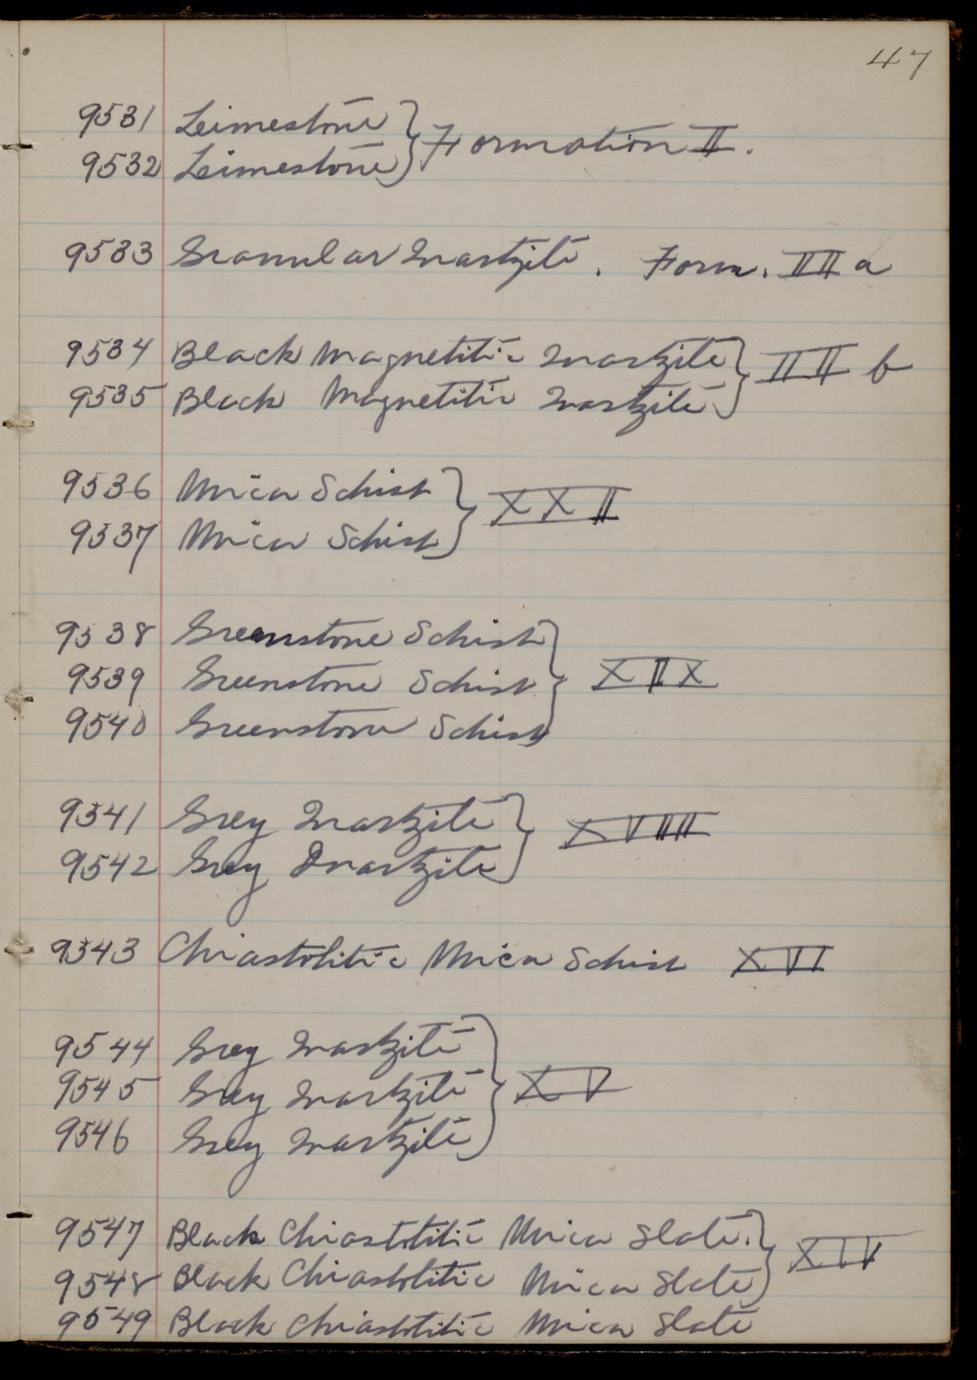 47
9531 Leimestone
9532 Leimestone } Formation II.
9533 Granular Quartzite. Form. III a
9534 Black Magnetitic Quartzite
9535 Black Magnetitic Quartzite } III b
9536 Mica Schist
9537 Mica Schist } XXII
9538 Greenstone Schist
9539 Greenstone Schist } XIX
9540 Greenstone Schist
9541 Grey Quartzite
9542 Grey Quartzite } XVIII
9543 Chiastolitic Mica Schist XVI
9544 Grey Quartzite
9545 Grey Quartzite } XV
9546 Grey Quartzite
9547 Black Chiastolitic Mica Slate.
9548 Black Chiastolitic Mica Slate } XIV
9549 Black Chiastolitic Mica Slate